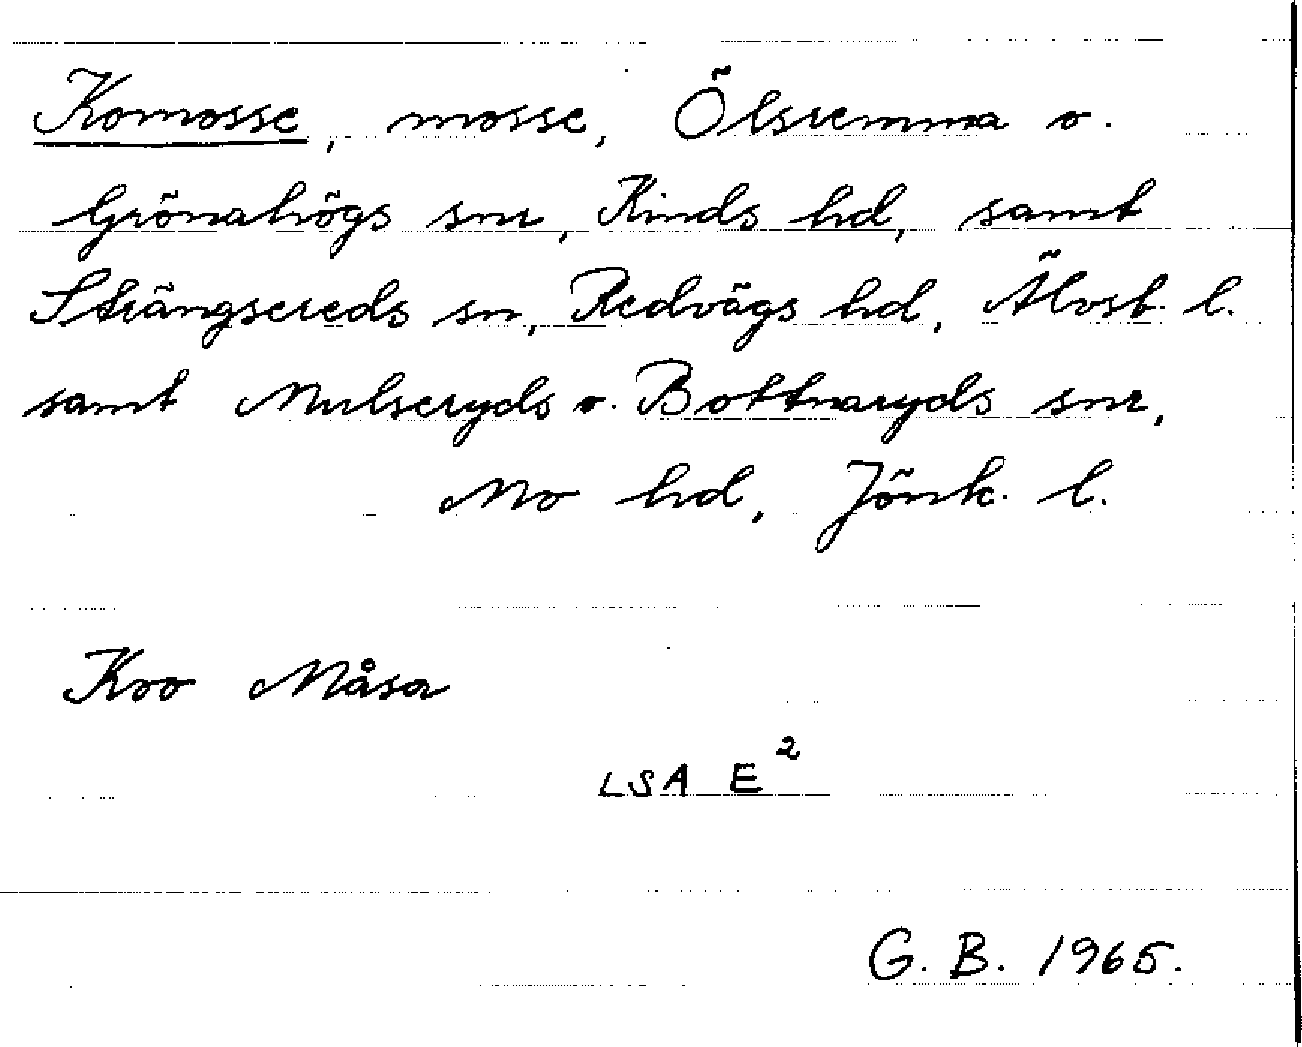 Komosse, mosse, Ölsremma o.
Grönahögs snr, Kinds hd, samt
Strängsereds sn, Redvägs hd, Älvsb. l.
samt Mulseryds o. Bottnaryds snr,
Mo hd, Jönk. l.
Koo Måsa
LSA E²
G. B. 1965.